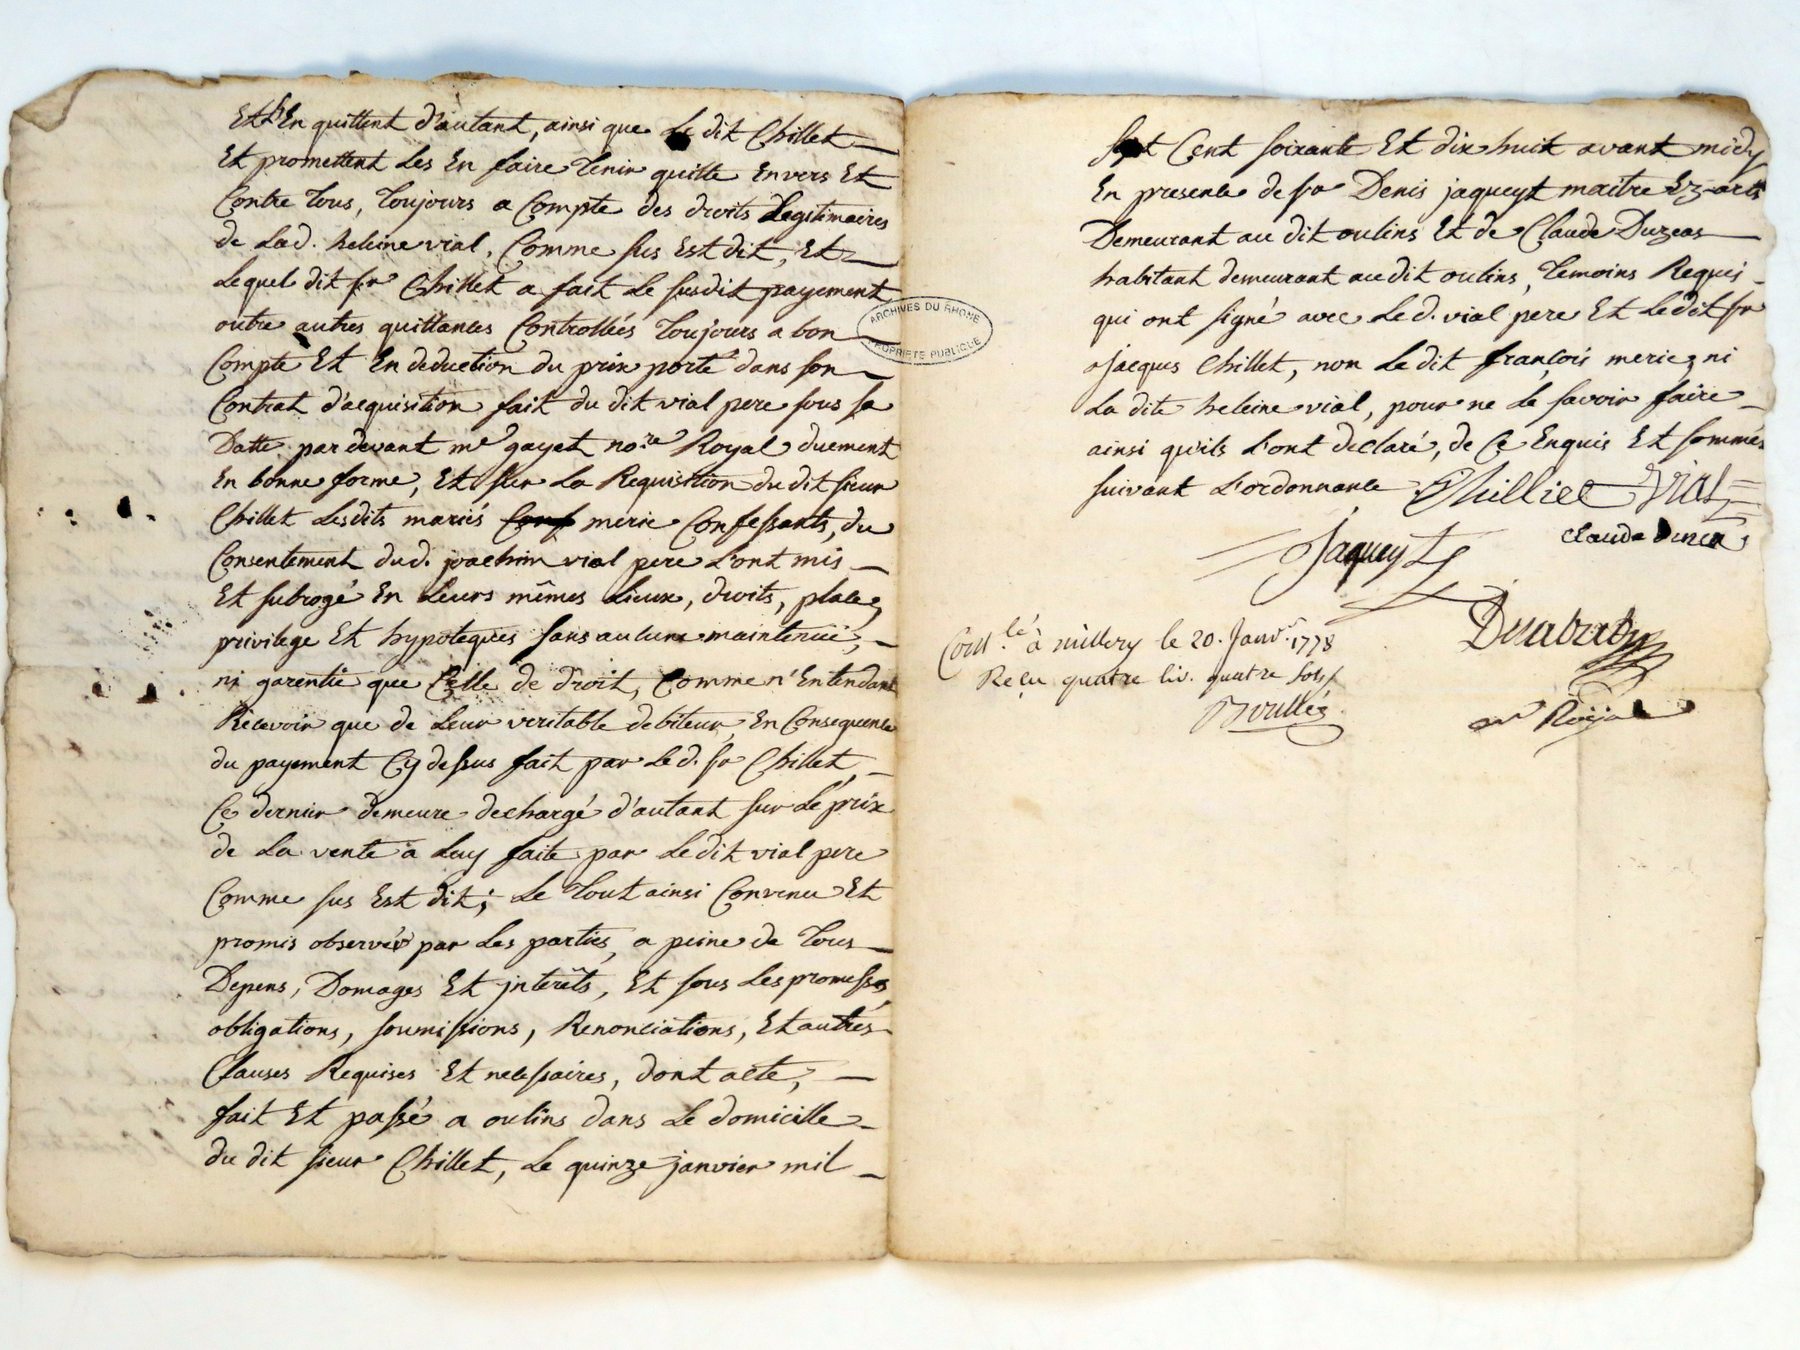 Et L'En quittent d'autant, ainsi que Le dit Chillet
Et promettent Les En faire Tenir quitte Envers Et
Contre Tous, Toujours a Compte des droits Legitimaires
de Lad. heleine vial, Comme sus Est dit, Et
Lequel dit sr Chillet a fait Le susdit payement
outre autres quittances Controllées Toujours a bon
Compte Et En deduction du prix porté dans son
Contrat d'acquisition fait du dit vial pere sous sa
Datte par devant me gayet no.re Royal duement
En bonne forme, Et sur La Requisition du dit sieur
Chillet Lesdits mariés Conf meric Confessants, du
Consentement dud. joachim vial pere L'ont mis
Et subrogé En Leurs mêmes Lieux, droits, places,
privilege Et hypoteques sans aucune maintenüe,
ni garentie que Celle de droit, Comme n'Entendant
Recevoir que de Leur veritable debiteur, En Consequence
du payement Cy dessus fait par Led. sr Chillet,
Ce dernier demeure dechargé d'autant sur Le prix
de La vente a Luy faite par Le dit vial pere
Comme sus Est dit; Le Tout ainsi Convenu Et
promis observér par Les parties, a peine de Tous
Depens, Domages Et jnterêts, Et sous Les promesses,
obligations, soumissions, Renonciations, Et autres
Clauses Requises Et necessaires, dont acte,
fait Et passé a oulins dans Le domicille
du dit sieur Chillet, Le quinze janvier mil
ARCHIVES DU RHONE
PROPRIETE PUBLIQUE
sept Cent soixante Et dix huit avant midy
En presence de sr Denis jaqueyt maitre Ez-arts
Demeurant au dit oulins Et de Claude Duzeas
habitant demeurant au dit oulins, Temoins Requis
qui ont signé avec Le d. vial pere Et Le dit sr
Jacques Chillet, non Le dit françois meric, ni
La dite heleine vial, pour ne Le savoir faire
ainsi qu'ils L'ont declaré, de Ce Enquis Et sommés
suivant L'ordonnance Chilliet Vial
Claude
Jaqueyt
Contr.lé à millery le 20. Janv.r 1778
Reçu quatre liv. quatre sols
nre Royal